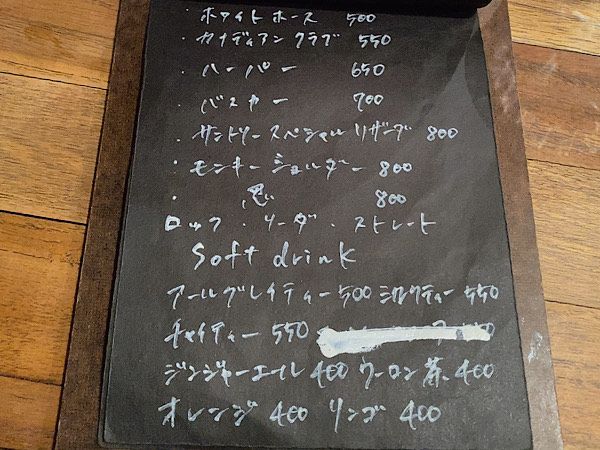 ・ホワイトホース 500
・カナディアンクラブ 550
・ハーパー 650
・バスカー 700
・サントリースペシャルリザーブ 800
・モンキーショルダー 800
・ 800
ロック・ソーダ・ストレート
Soft drink
アールグレイティー 500 ミルクティー 550
チャイティー 550
ジンジャーエール 400 ウーロン茶 400
オレンジ 400 リンゴ 400